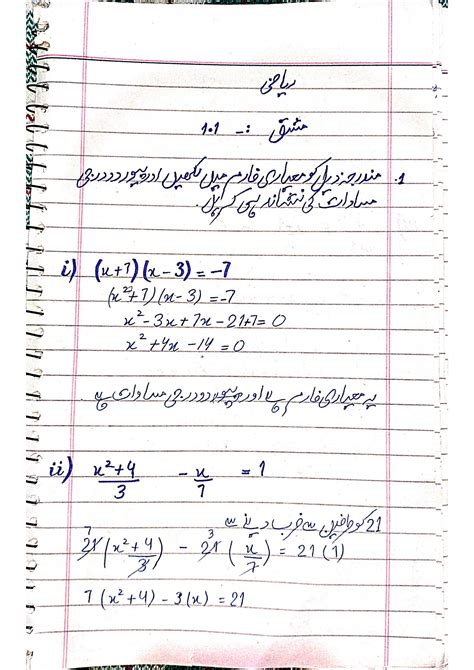 ریاضی
مشق :- 1.1
1. مندرجہ ذیل کو معیاری فارم میں لکھیں اور پیور دو درجی
مساوات کی نشاندہی کریں.
i) (x+7)(x-3) = -7
(x+7)(x-3) = -7
x²-3x+7x-21+7=0
x²+4x-14=0
یہ معیاری فارم ہے اور پیور دو درجی مساوات ہے.
ii) x²+4/3 - x/7 = 1
21 کو طرفین سے ضرب دینے سے
7 21(x²+4/3) - 3 21(x/7) = 21(1)
7(x²+4)-3(x)=21